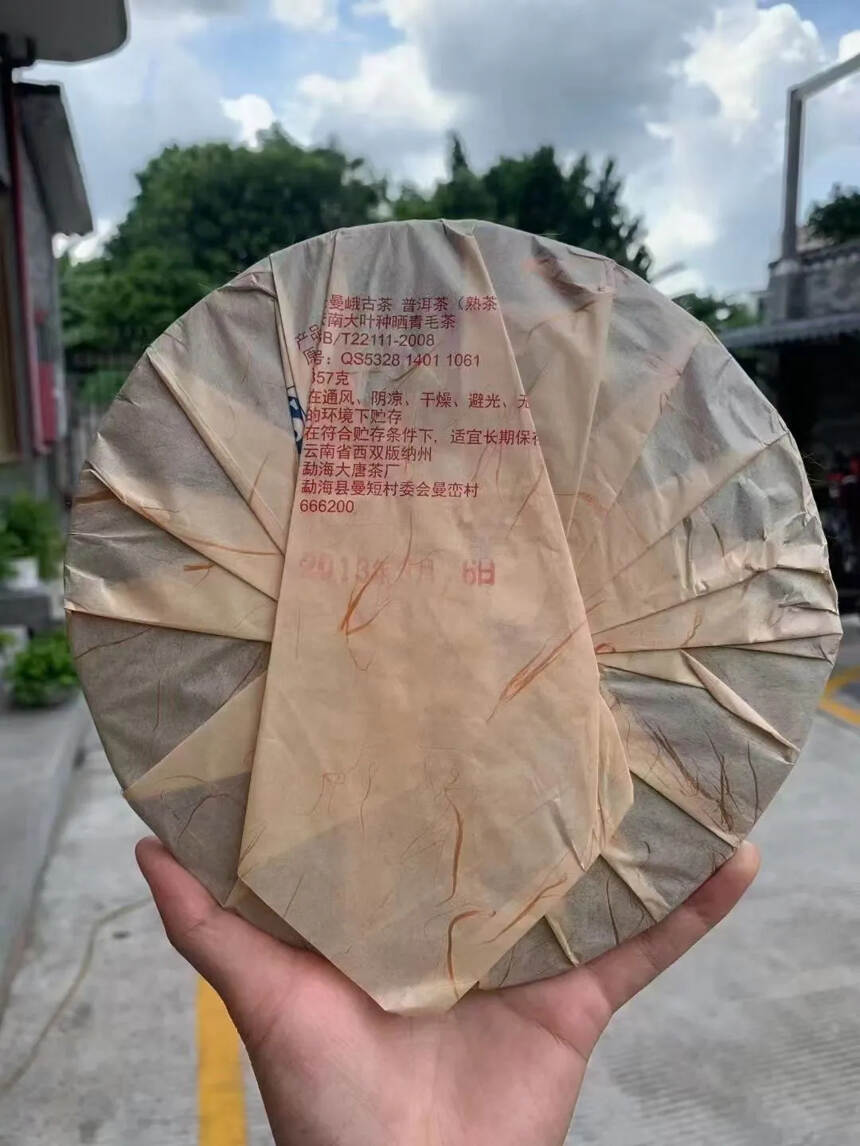 曼峨古茶 普洱茶（熟茶
南大叶种晒青毛茶
产品 B/T22111-2008
号：QS5328 1401 1061
357克
在通风、阴凉、干燥、避光、无
的环境下贮存
在符合贮存条件下，适宜长期保存
云南省西双版纳州
勐海大唐茶厂
勐海县曼短村委会曼峦村
666200
2013年 月 6日